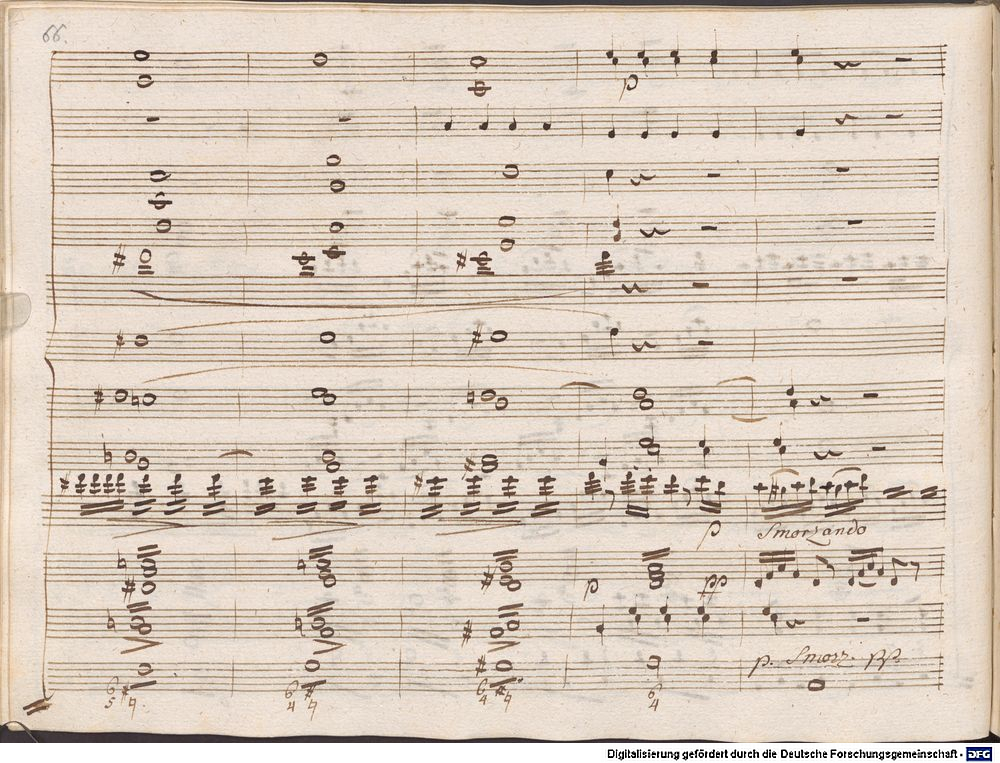 66.
p
p Smorzando
p pp
p. Smorz. pp.
6 6 6 6
5 4 4 4 4 4 4
Digitalisierung gefördert durch die Deutsche Forschungsgemeinschaft - DFG